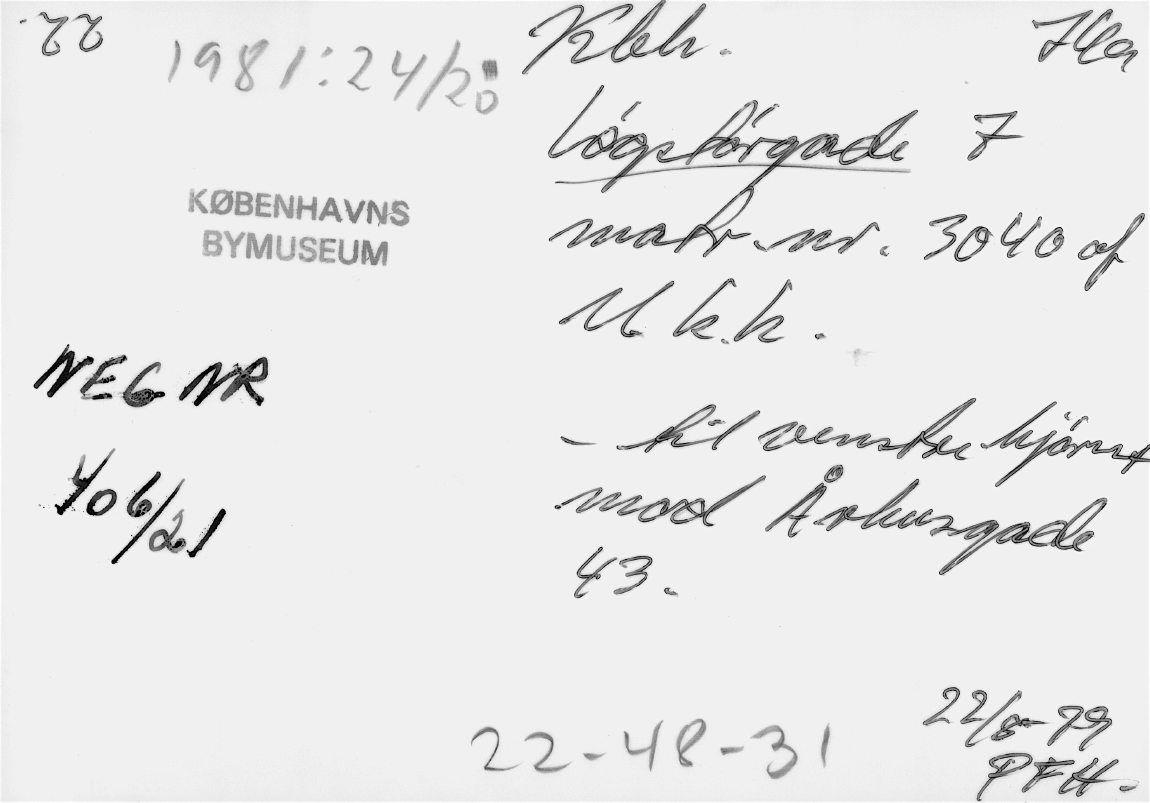 22
1981:24/20
Kbh.
Løgstörgade 7
matr.nr. 3040 af
U.k.k.
KØBENHAVNS
BYMUSEUM
NEG NR
406/21
- til venstre hjörnet
mod Århusgade
43.
22/8-79
PFH.
22-48-31